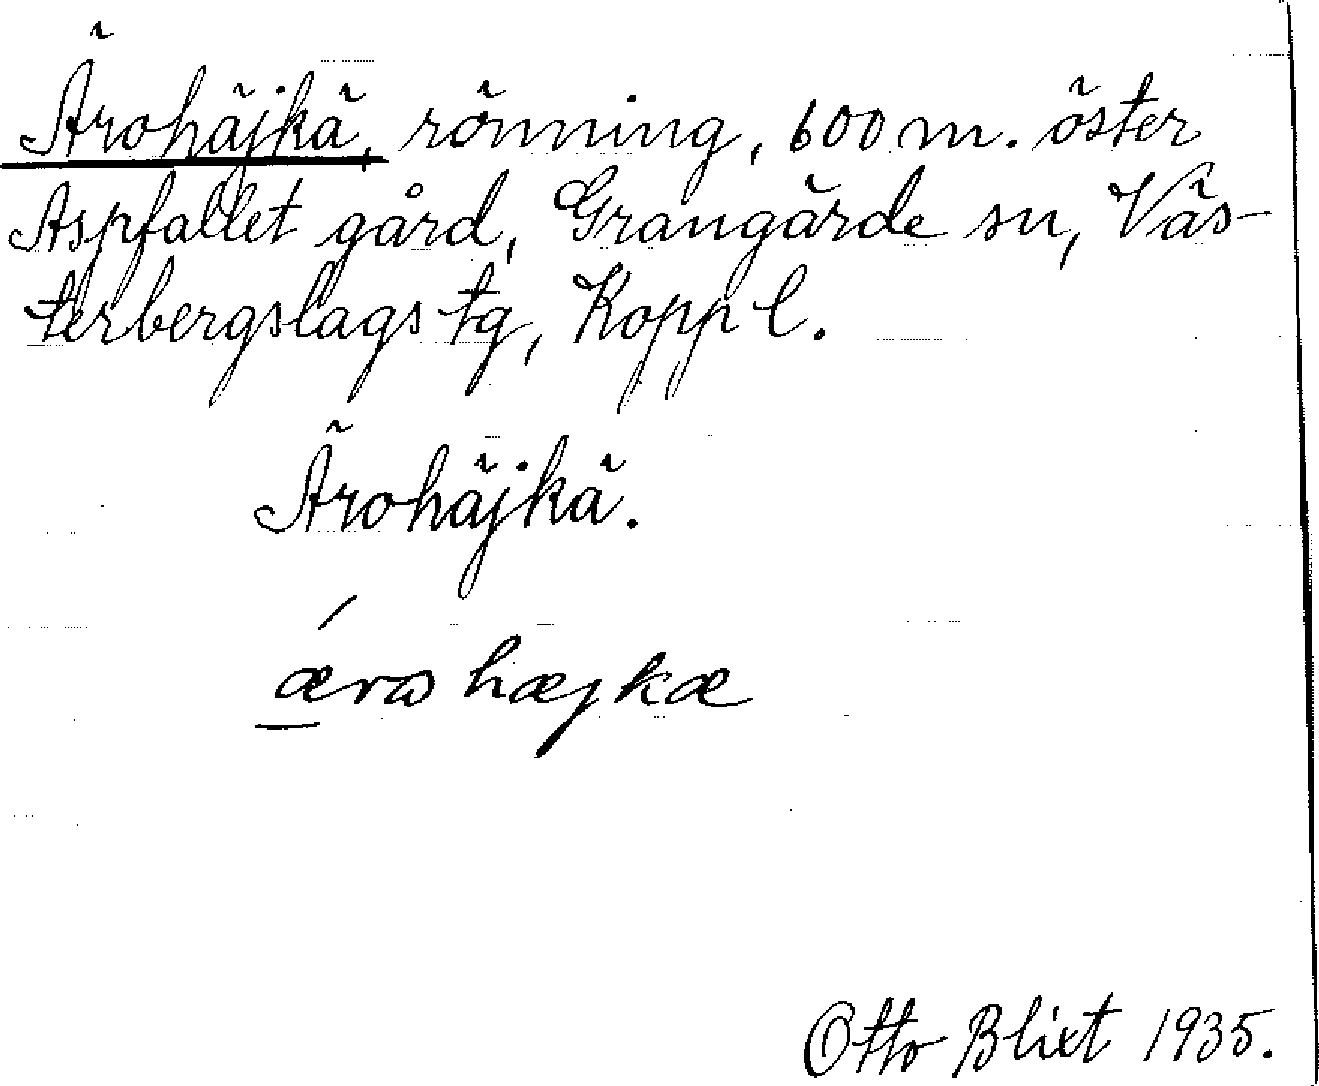 Ärohäjkä, rönning, 600 m. öster
Aspfallet gård, Grangärde sn, Väs-
terbergslags tg, Kopp l.
Ärohäjkä.
ǽrω hæjkæ
Otto Blixt 1935.